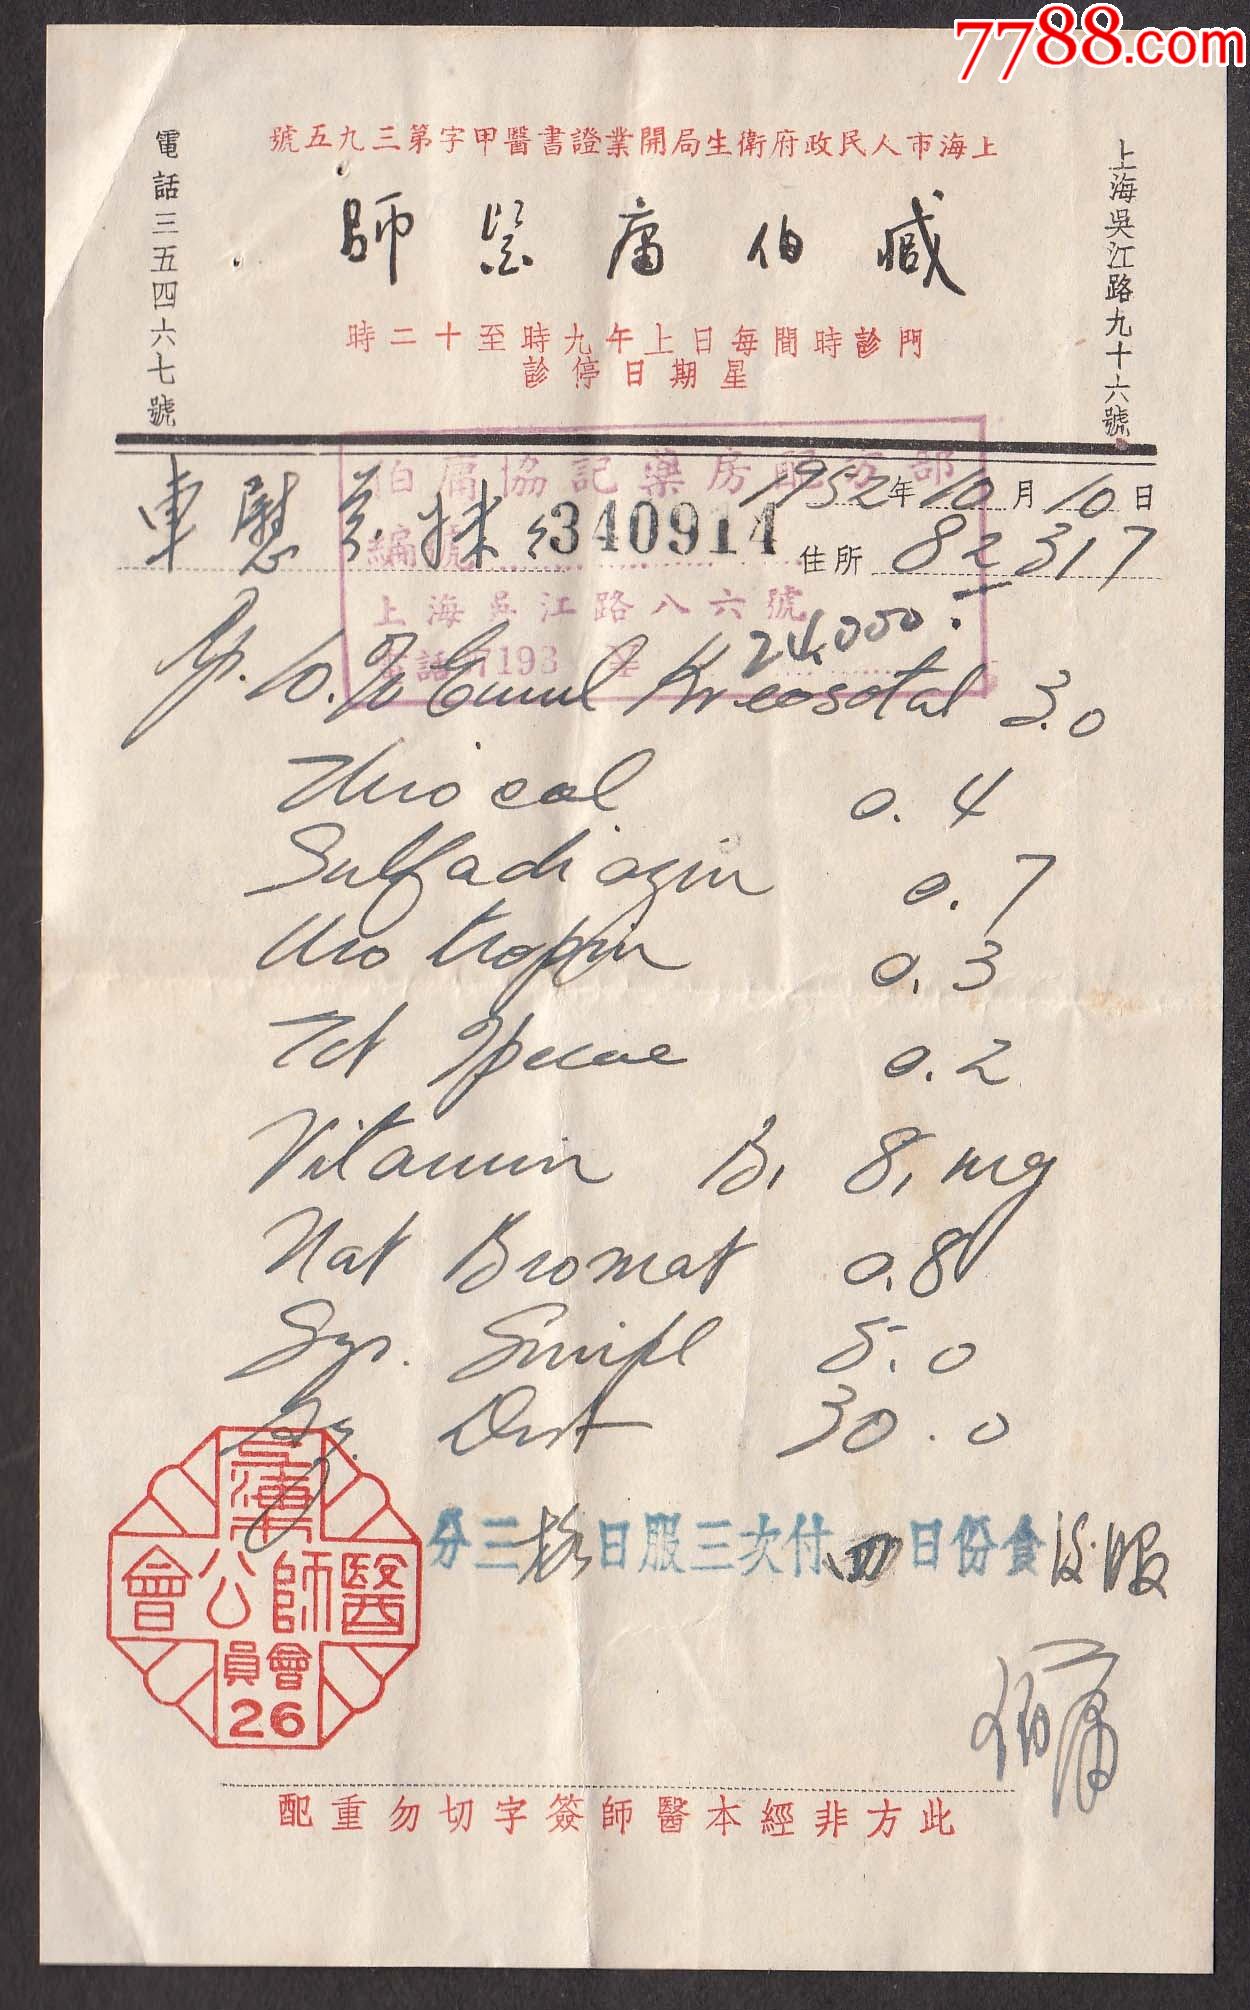 7788.com
上海市人民政府衛生局開業證書醫甲字第三九五號
臧伯庸醫師
門診時間每日上午九時至十二時
星期日停診
上海吳江路九十六號
電話三五四六七號
伯庸協記藥房配方部
1952年10月10日
車慰
編號 340914
住所 82317
上海吳江路八六號
24,000.
電話 7193 ¥
Rp. 10.% Emul Kreosotal 3.0
Thiocol 0.4
Sulfadiazin 0.7
Urotropin 0.3
Tct Ipecac 0.2
Vitamin B1 8, mg
Nat Bromat 0.8
Syr. Simpl 5.0
Aq. Dest 30.0
分三格日服三次付四日份食後服
上海
醫師公會
會員
26
伯庸
此方非經本醫師簽字切勿重配